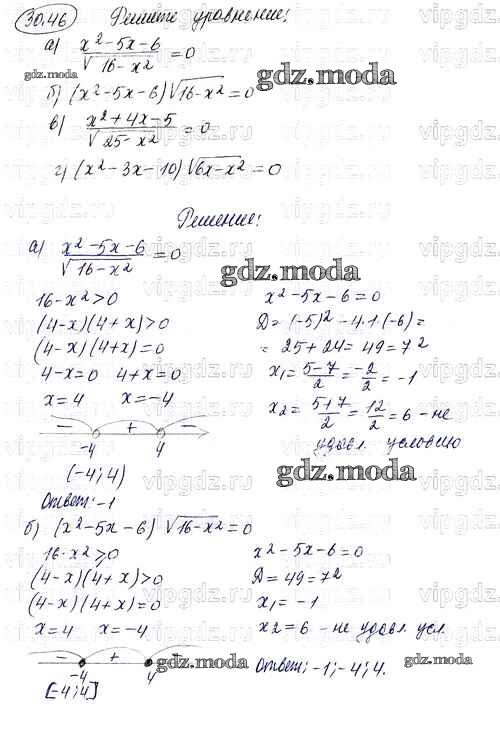 30.46 Решите уравнение:
а) x²-5x-6 / √16-x² = 0
gdz.moda
gdz.moda
б) (x²-5x-6)√16-x² = 0
в) x²+4x-5 / √25-x² = 0
г) (x²-3x-10)√6x-x² = 0
Решение:
а) x²-5x-6 / √16-x² = 0
gdz.moda
16-x²>0
(4-x)(4+x)>0
(4-x)(4+x)=0
4-x=0 4+x=0
x=4 x=-4
- + -
-4 4
(-4;4)
Ответ: -1
x²-5x-6=0
D=(-5)²-4·1·(-6)=
=25+24=49=7²
x₁=5-7/2=-2/2=-1
x₂=5+7/2=12/2=6 - не
удовл. условию
gdz.moda
б) (x²-5x-6) √16-x² = 0
16-x²≥0
(4-x)(4+x)>0
(4-x)(4+x)=0
x=4 x=-4
- + -
-4 4
[-4;4]
x²-5x-6=0
D=49=7²
x₁=-1
x₂=6 - не удовл. усл.
gdz.moda
Ответ: -1; -4; 4.
gdz.moda